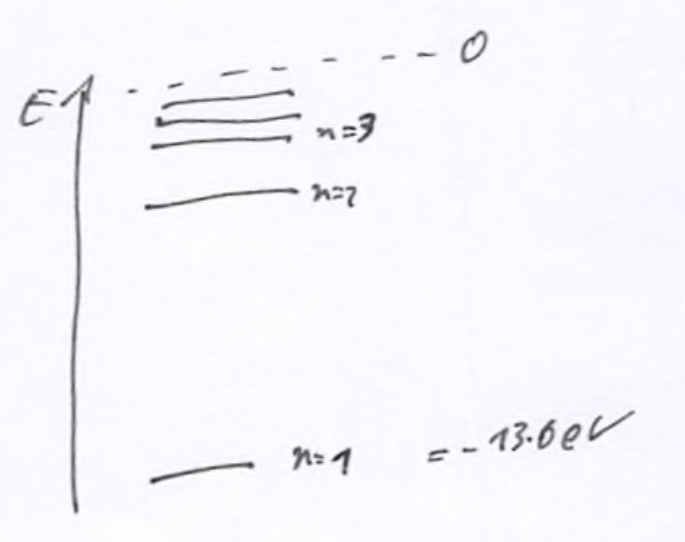 0
E
n=3
n=2
n=1 = - 13.6 eV